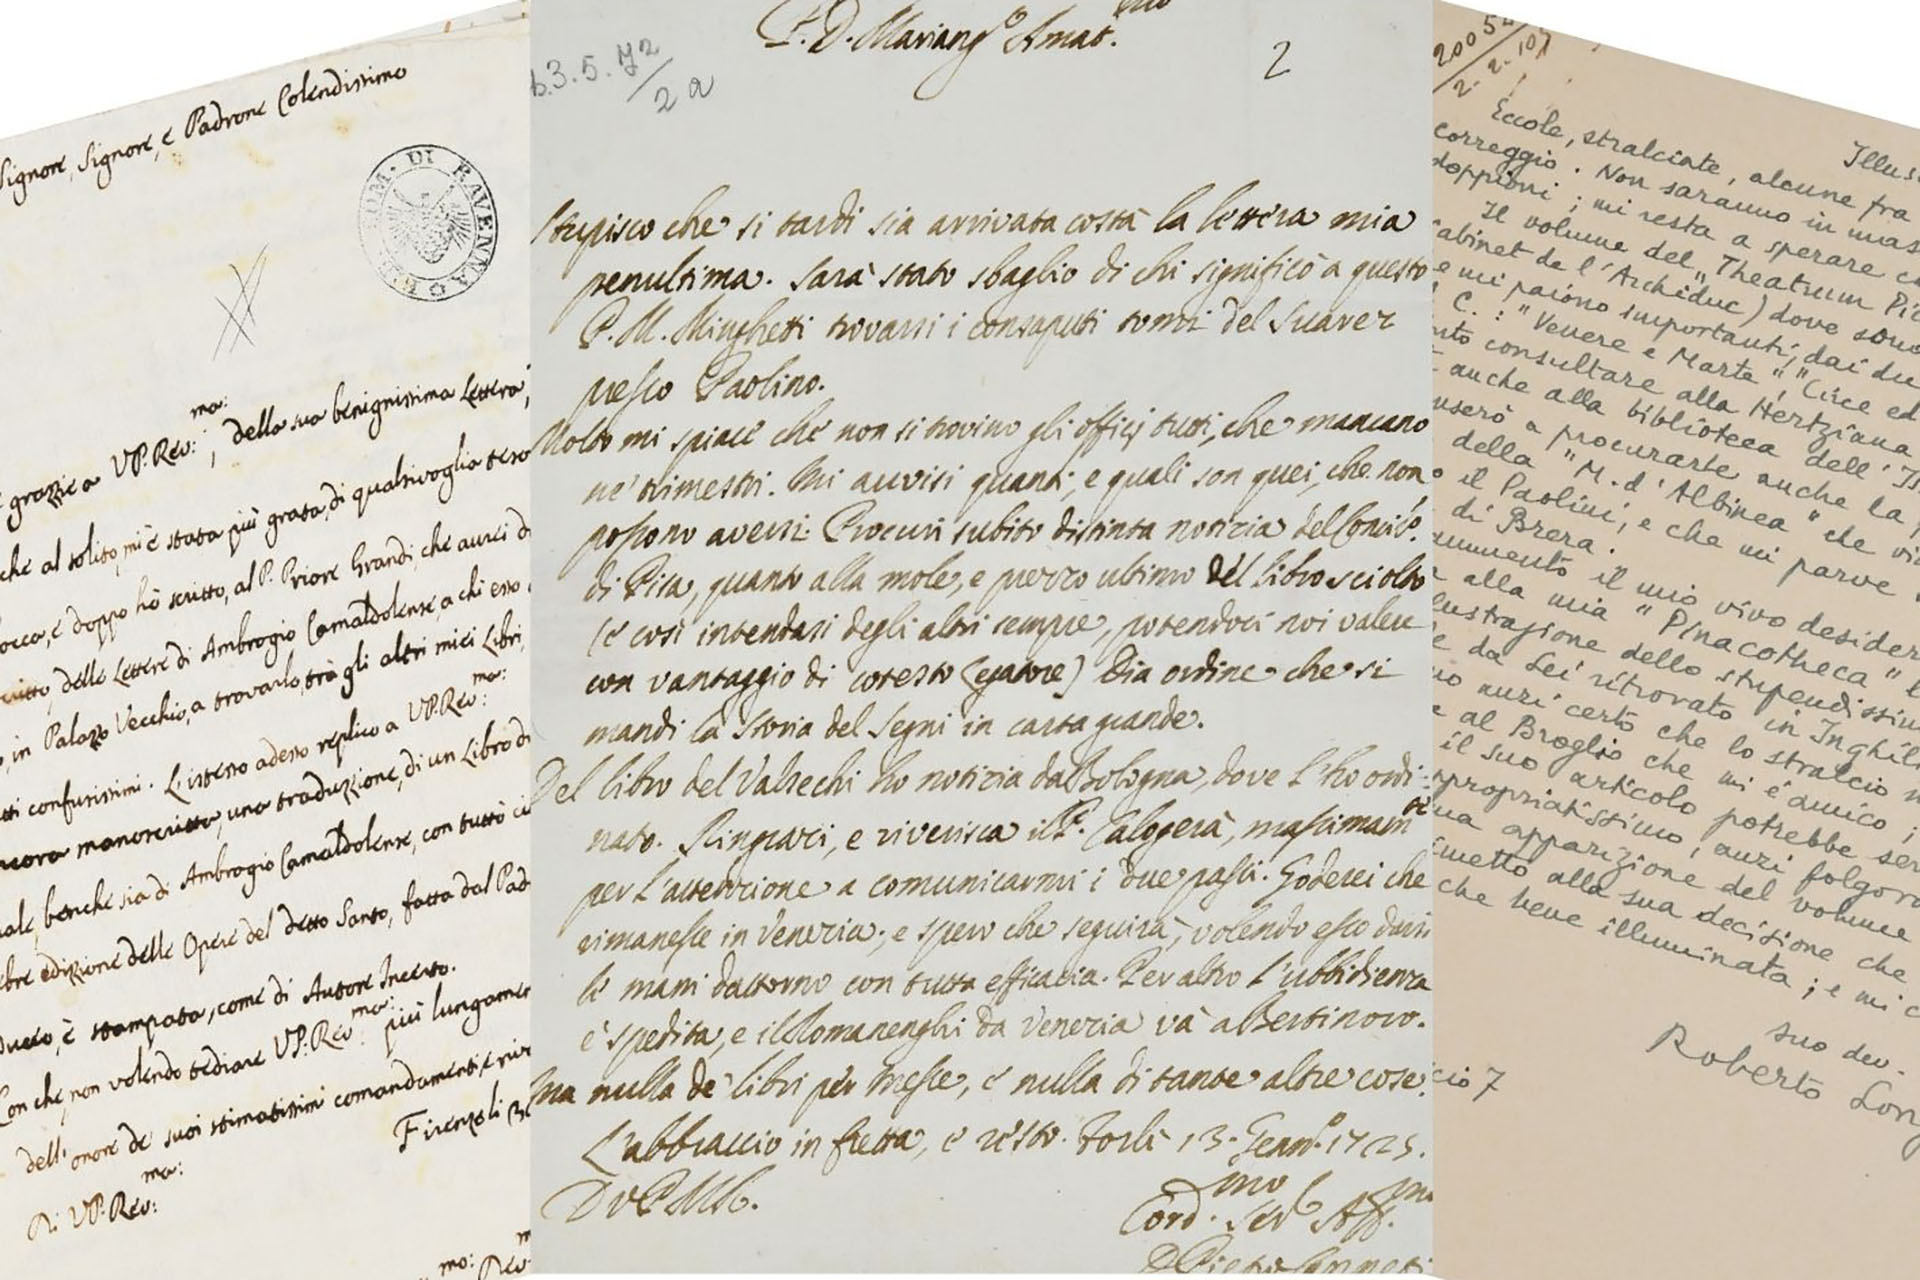 Signore, Signore, e Padrone Colendissimo
DI RAVENNA
ma:
grazie a VP: Rev: , della sua benignissima Lettera,
che al solito, mi è stata più grata, di qualsivoglia
e doppo hò scritto, al P. Priore Grandi, che aurei
delle Lettere di Ambrogio Camaldolense, a chi esso
in Palazzo Vecchio, a trovarlo, trà gli altri miei Libri,
ma:
confusissimi. L'istesso adesso replico a VP: Rev:
ancora manoscritta, una traduzzione, di un Libro di
benche sia di Ambrogio Camaldolense, con tutto ciò
edizzione delle Opere del detto Santo, fatta dal Pad
è stampata, come di Autore Incerto.
ma:
Con che, non volendo tediare VP: Rev: più lungamen
dell'onore de suoi stimatissimi comandamenti, e
Firenze li
ma:
Di VP: Rev:
mo:
P. D. Mariang.o Amat.mo
b.3.5.72/2a
2
Stupisco che si tardi sia arrivata costà la lettera mia
penultima. Sarà stato sbaglio di chi significò a questo
P. M. Minghetti trovarsi i consaputi tomi del Suarez
presso Paolino.
Molto mi spiace che non si trovino gli officj tutti, che mancano
ne' trimestri. Mi avvisi quanti, e quali son quei, che non
possono aversi. Procuri subito distinta notizia del
di Pisa, quanto alla mole, e prezzo ultimo del libro sciolto
(e così intendasi degli altri sempre, potendoci noi valere
con vantaggio di cotesto legatore) Dia ordine che si
mandi la Storia del Segni in carta grande.
Del libro del Valsechi ho notizia da Bologna, dove l'ho ordi-
nato. Ringrazi, e riverisca il P. Calogerà, massimam.te
per l'attenzione a comunicarmi i due passi. Goderei che
rimanesse in Venezia, e spero che seguirà, volendo esso darsi
le mani dattorno con tutta efficacia. Per altro l'ubbidienza
è spedita, e il Romanenghi da Venezia và a Bertinoro.
Ma nulla de' libri per Messe, e nulla di tante altre cose.
L'abbraccio in fretta, e resto. Forlì 13. Genn.o 1725.
D V P M R.
Cord.mo Ser.e Aff.mo
D Pietro Canneti
2005
2. 2. 107
Illus
Eccole, stralciate, alcune fra
Correggio. Non saranno in mas
doppioni; mi resta a sperare c
Il volume del "Theatrum Pic
Cabinet de l'Archiduc) dove sono
e mi paiono importanti, dai du
C.: "Venere e Marte", "Circe ed
consultare alla Hertziana
anche alla biblioteca dell'Is
userò a procurarte anche la
della "M. d'Albinea" che vi
il Paolini, e che mi parve
di Brera.
il mio vivo desider
alla mia "Pinacotheca"
lustrazione dello stupendissim
da Lei ritrovato in Inghil
anzi certo che lo stralcio
al Broglio che mi è amico;
il suo articolo potrebbe ser
appropriatissimo, anzi folgora
apparizione del volume
imetto alla sua decisione che
che bene illuminata; e mi c
suo dev.
Roberto Long
cio 7